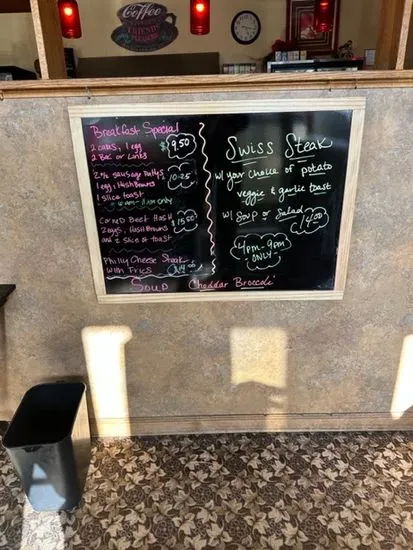 Coffee
FRIENDS
Breakfast Special
2 cakes, 1 egg
2 Bac or Links
$9.50
2 Sausage Pattys
1 egg, Hash Browns
1 slice toast
10.25
6am-11am only
Corned Beef Hash
2 eggs, Hash Browns
and 2 slice of toast
$15.50
Philly Cheese Steak
with Fries
$14.00
Swiss Steak
w/ your choice of potato
veggie & garlic toast
w/ Soup or Salad
14.00
4pm-9pm
ONLY
Soup Cheddar Broccoli